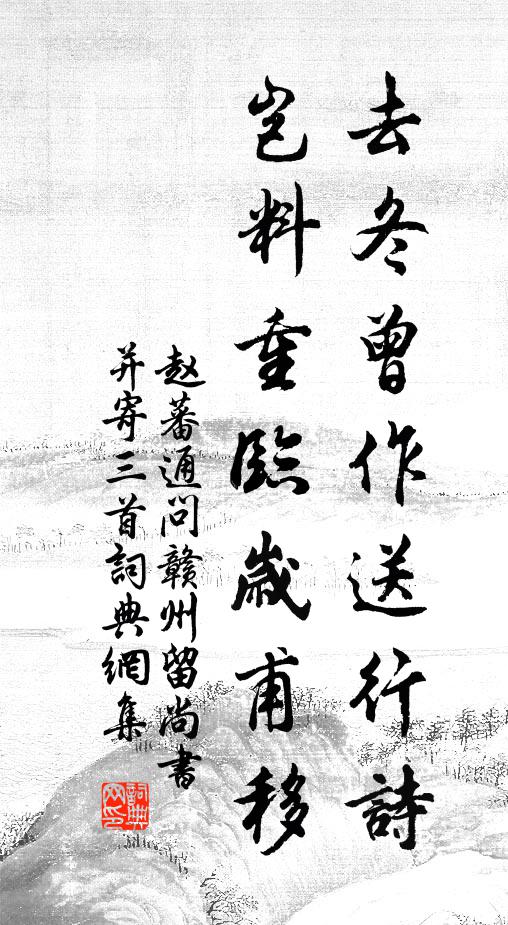 去冬曾作送行詩
豈料重臨歲甫移
赵蕃通問贛州留尚書
并寄三首詞典網集
詞典网印